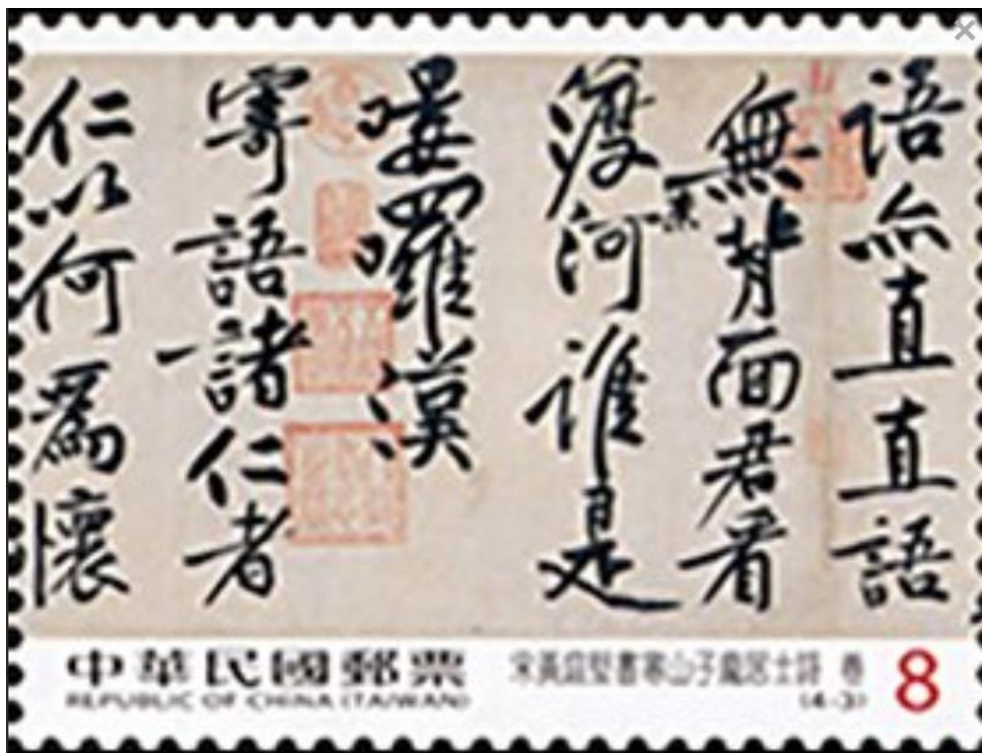 語亦直直語
無背面君看
渡柰河誰是
嘍囉漢
寄語諸仁者
仁以何爲懷
中華民國郵票
REPUBLIC OF CHINA (TAIWAN)
宋黃庭堅書寒山子龐居士詩 卷
(4-3)
8